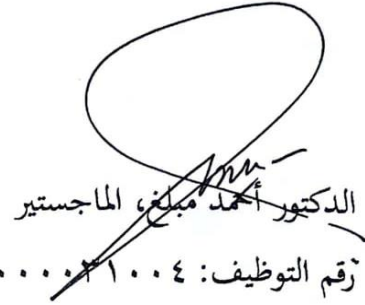 الدكتور أحمد مبلغ، الماجستير
رقم التوظيف: ٣١٠٠٤